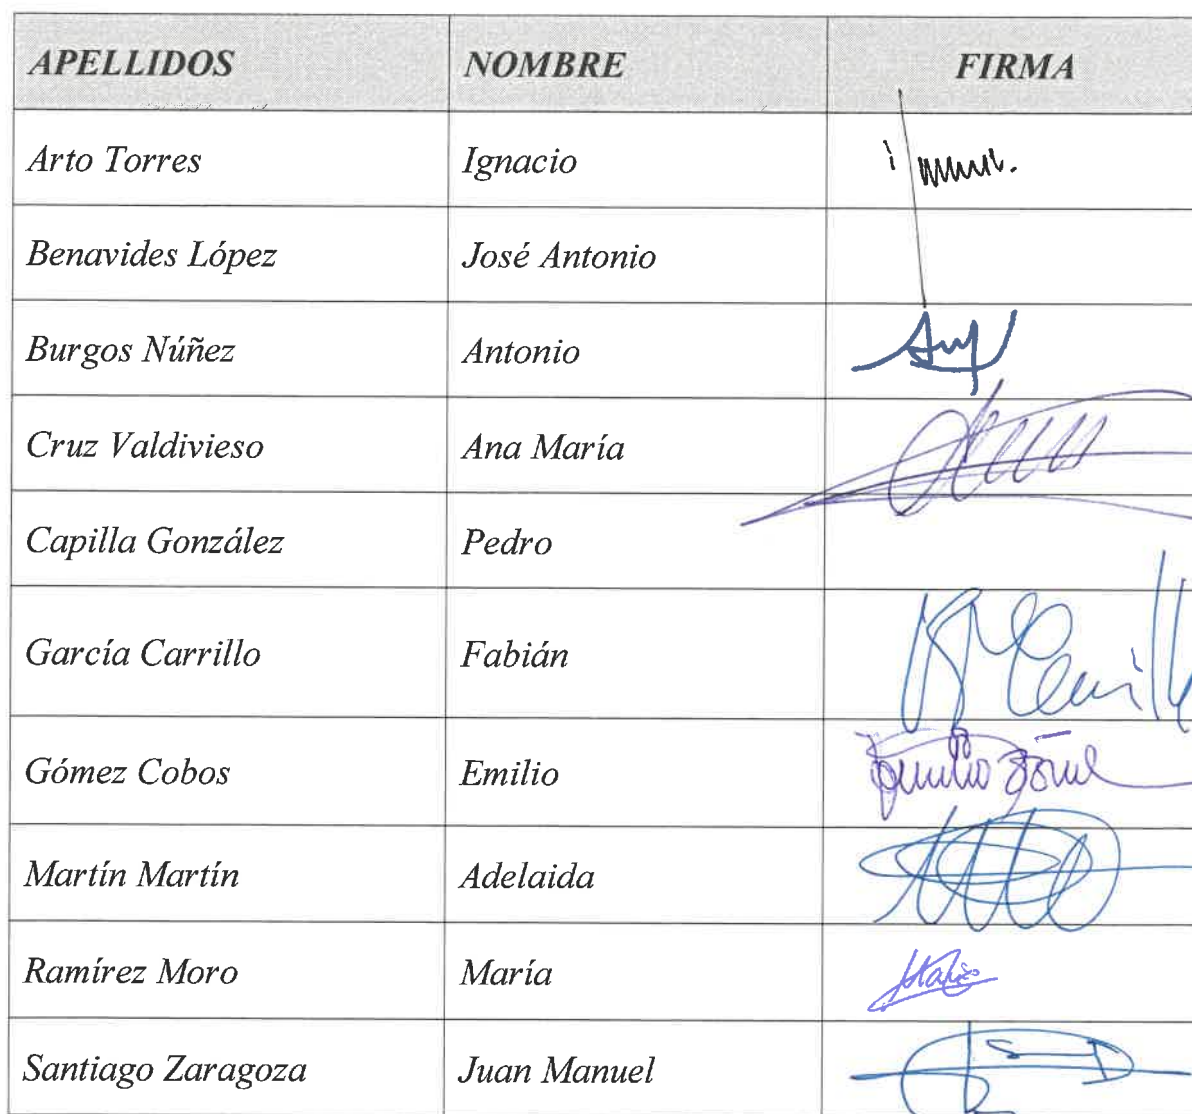 APELLIDOS NOMBRE FIRMA
Arto Torres Ignacio
Benavides López José Antonio
Burgos Núñez Antonio
Cruz Valdivieso Ana María
Capilla González Pedro
García Carrillo Fabián
Gómez Cobos Emilio
Martín Martín Adelaida
Ramírez Moro María
Santiago Zaragoza Juan Manuel